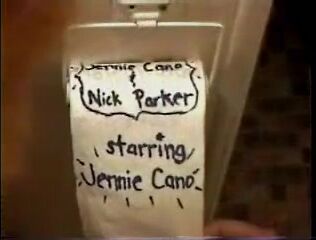 Jennie Cano
&
Nick Parker
starring
Jennie Cano